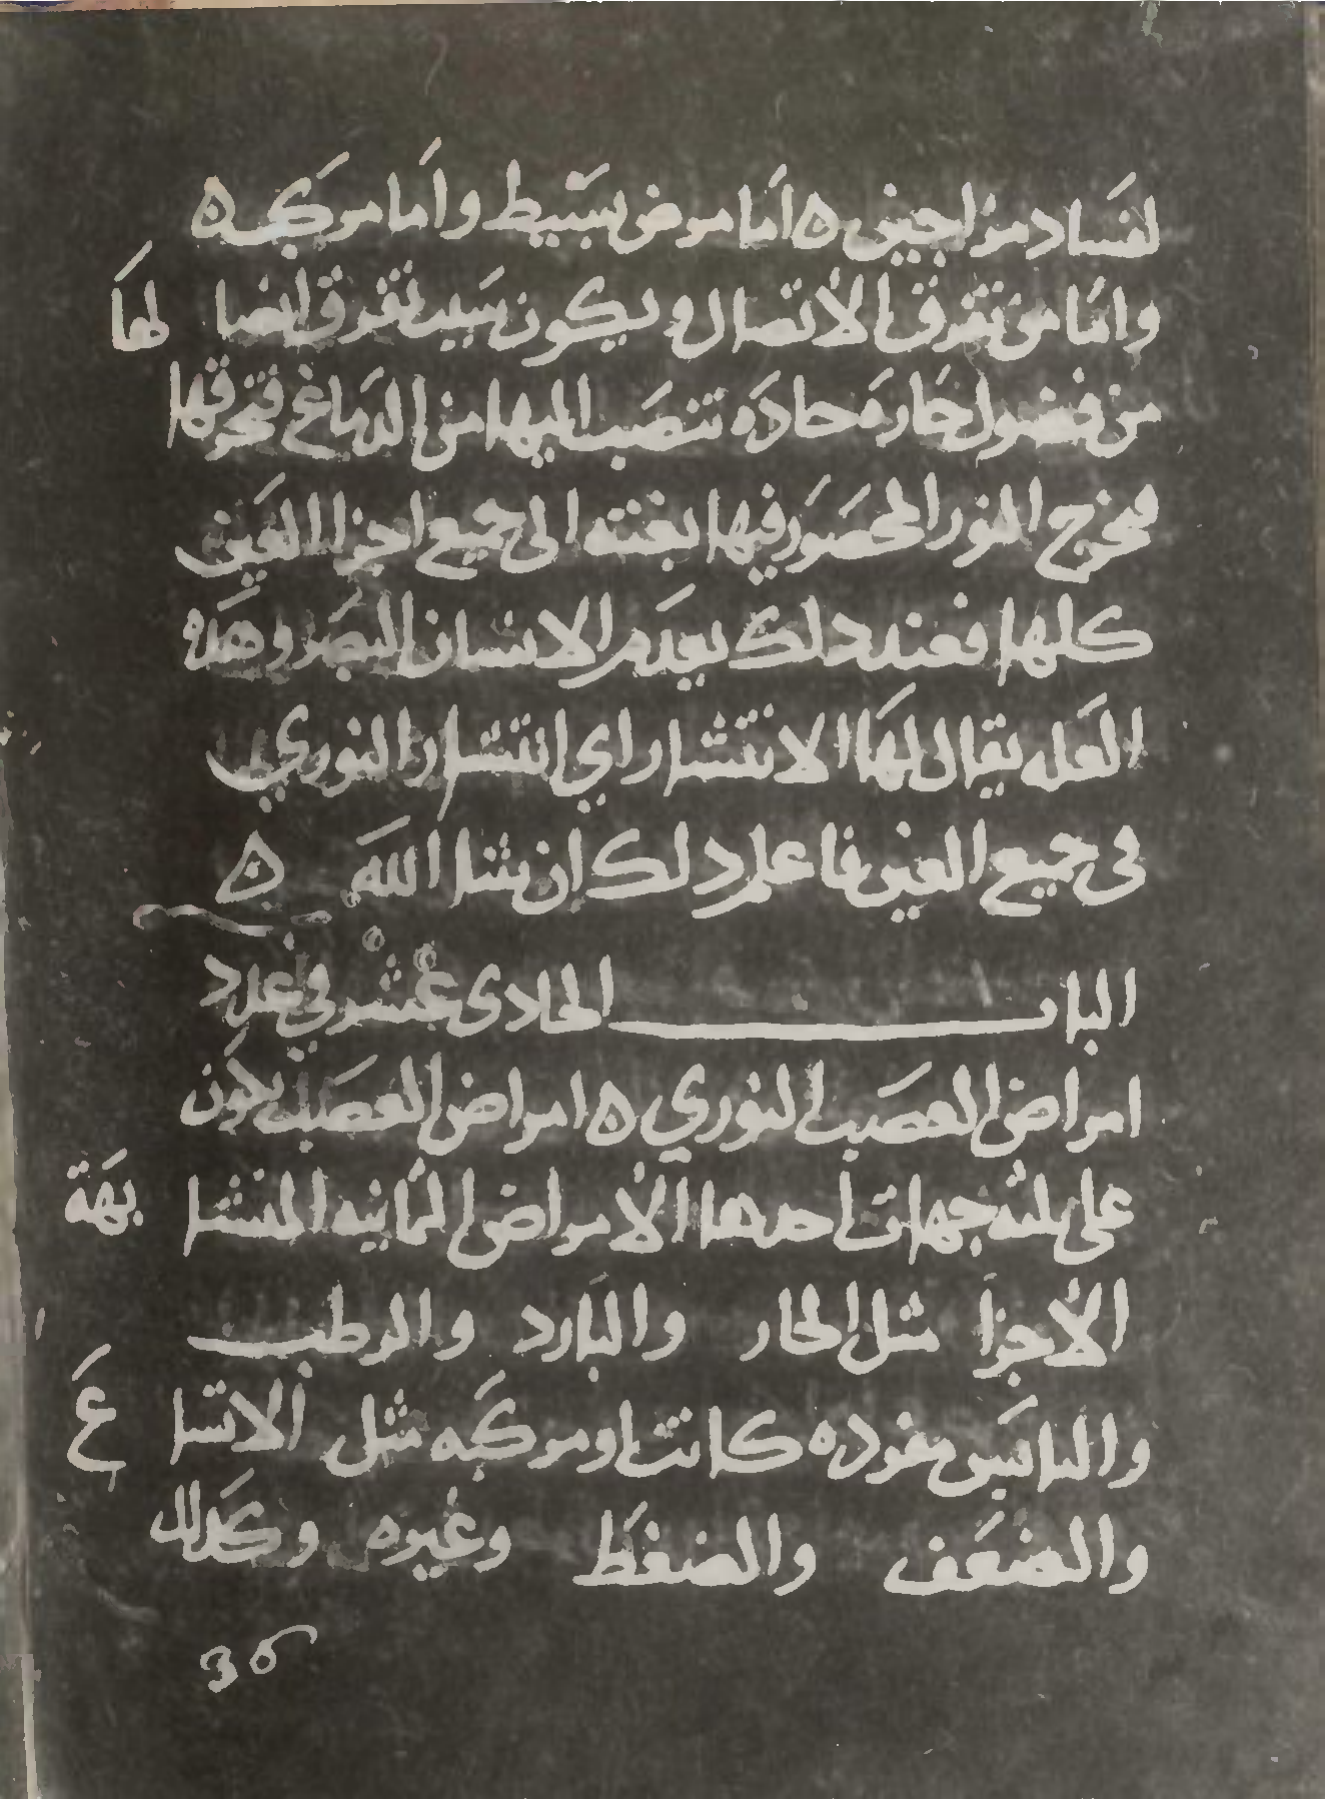 لفساد مزاجين ه اما مرض بسيط واما مركب ه
واما من تفرق الاتصال ويكون سبب تفرق اتصالها
من فضول حاره حاده تنصب اليها من الدماغ فتحرقها
فيخرج النور المحصور فيها بغته الى جميع اجزا العين
كلها فعند دلك يعدم الانسان البصر وهده
العله يقال لها الانتشار اي انتشار النوري
في جميع العين فاعلم دلك إن شا الله ه
الباب الحادى عشر في عدد
امراض العصب النوري ه امراض العصب يكون
على ثلثه جهات احدها الأمراض الثمانيه المتشابهة
الأجزا مثل الحار والبارد والرطب
واليابس مفرده كانت او مركبه مثل الاتساع
والضعف والضغط وغيره وكدلك
36